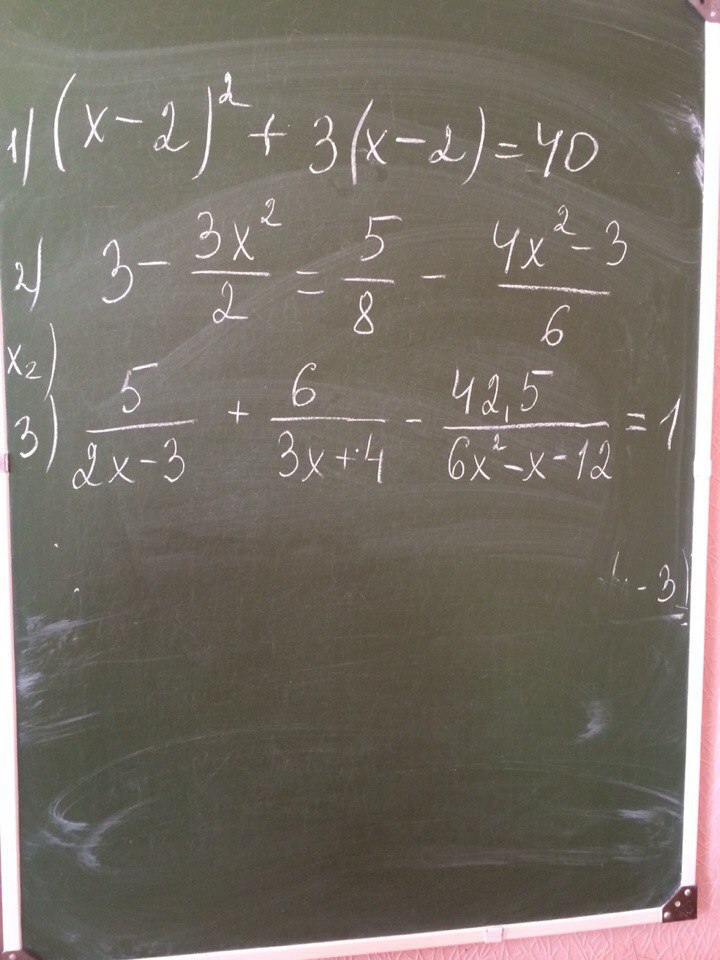 1) (x-2)² + 3(x-2) = 40
2) 3 - 3x²/2 = 5/8 - (4x²-3)/6
x₂)
3) 5/(2x-3) + 6/(3x+4) - 42,5/(6x²-x-12) = 1
-3)